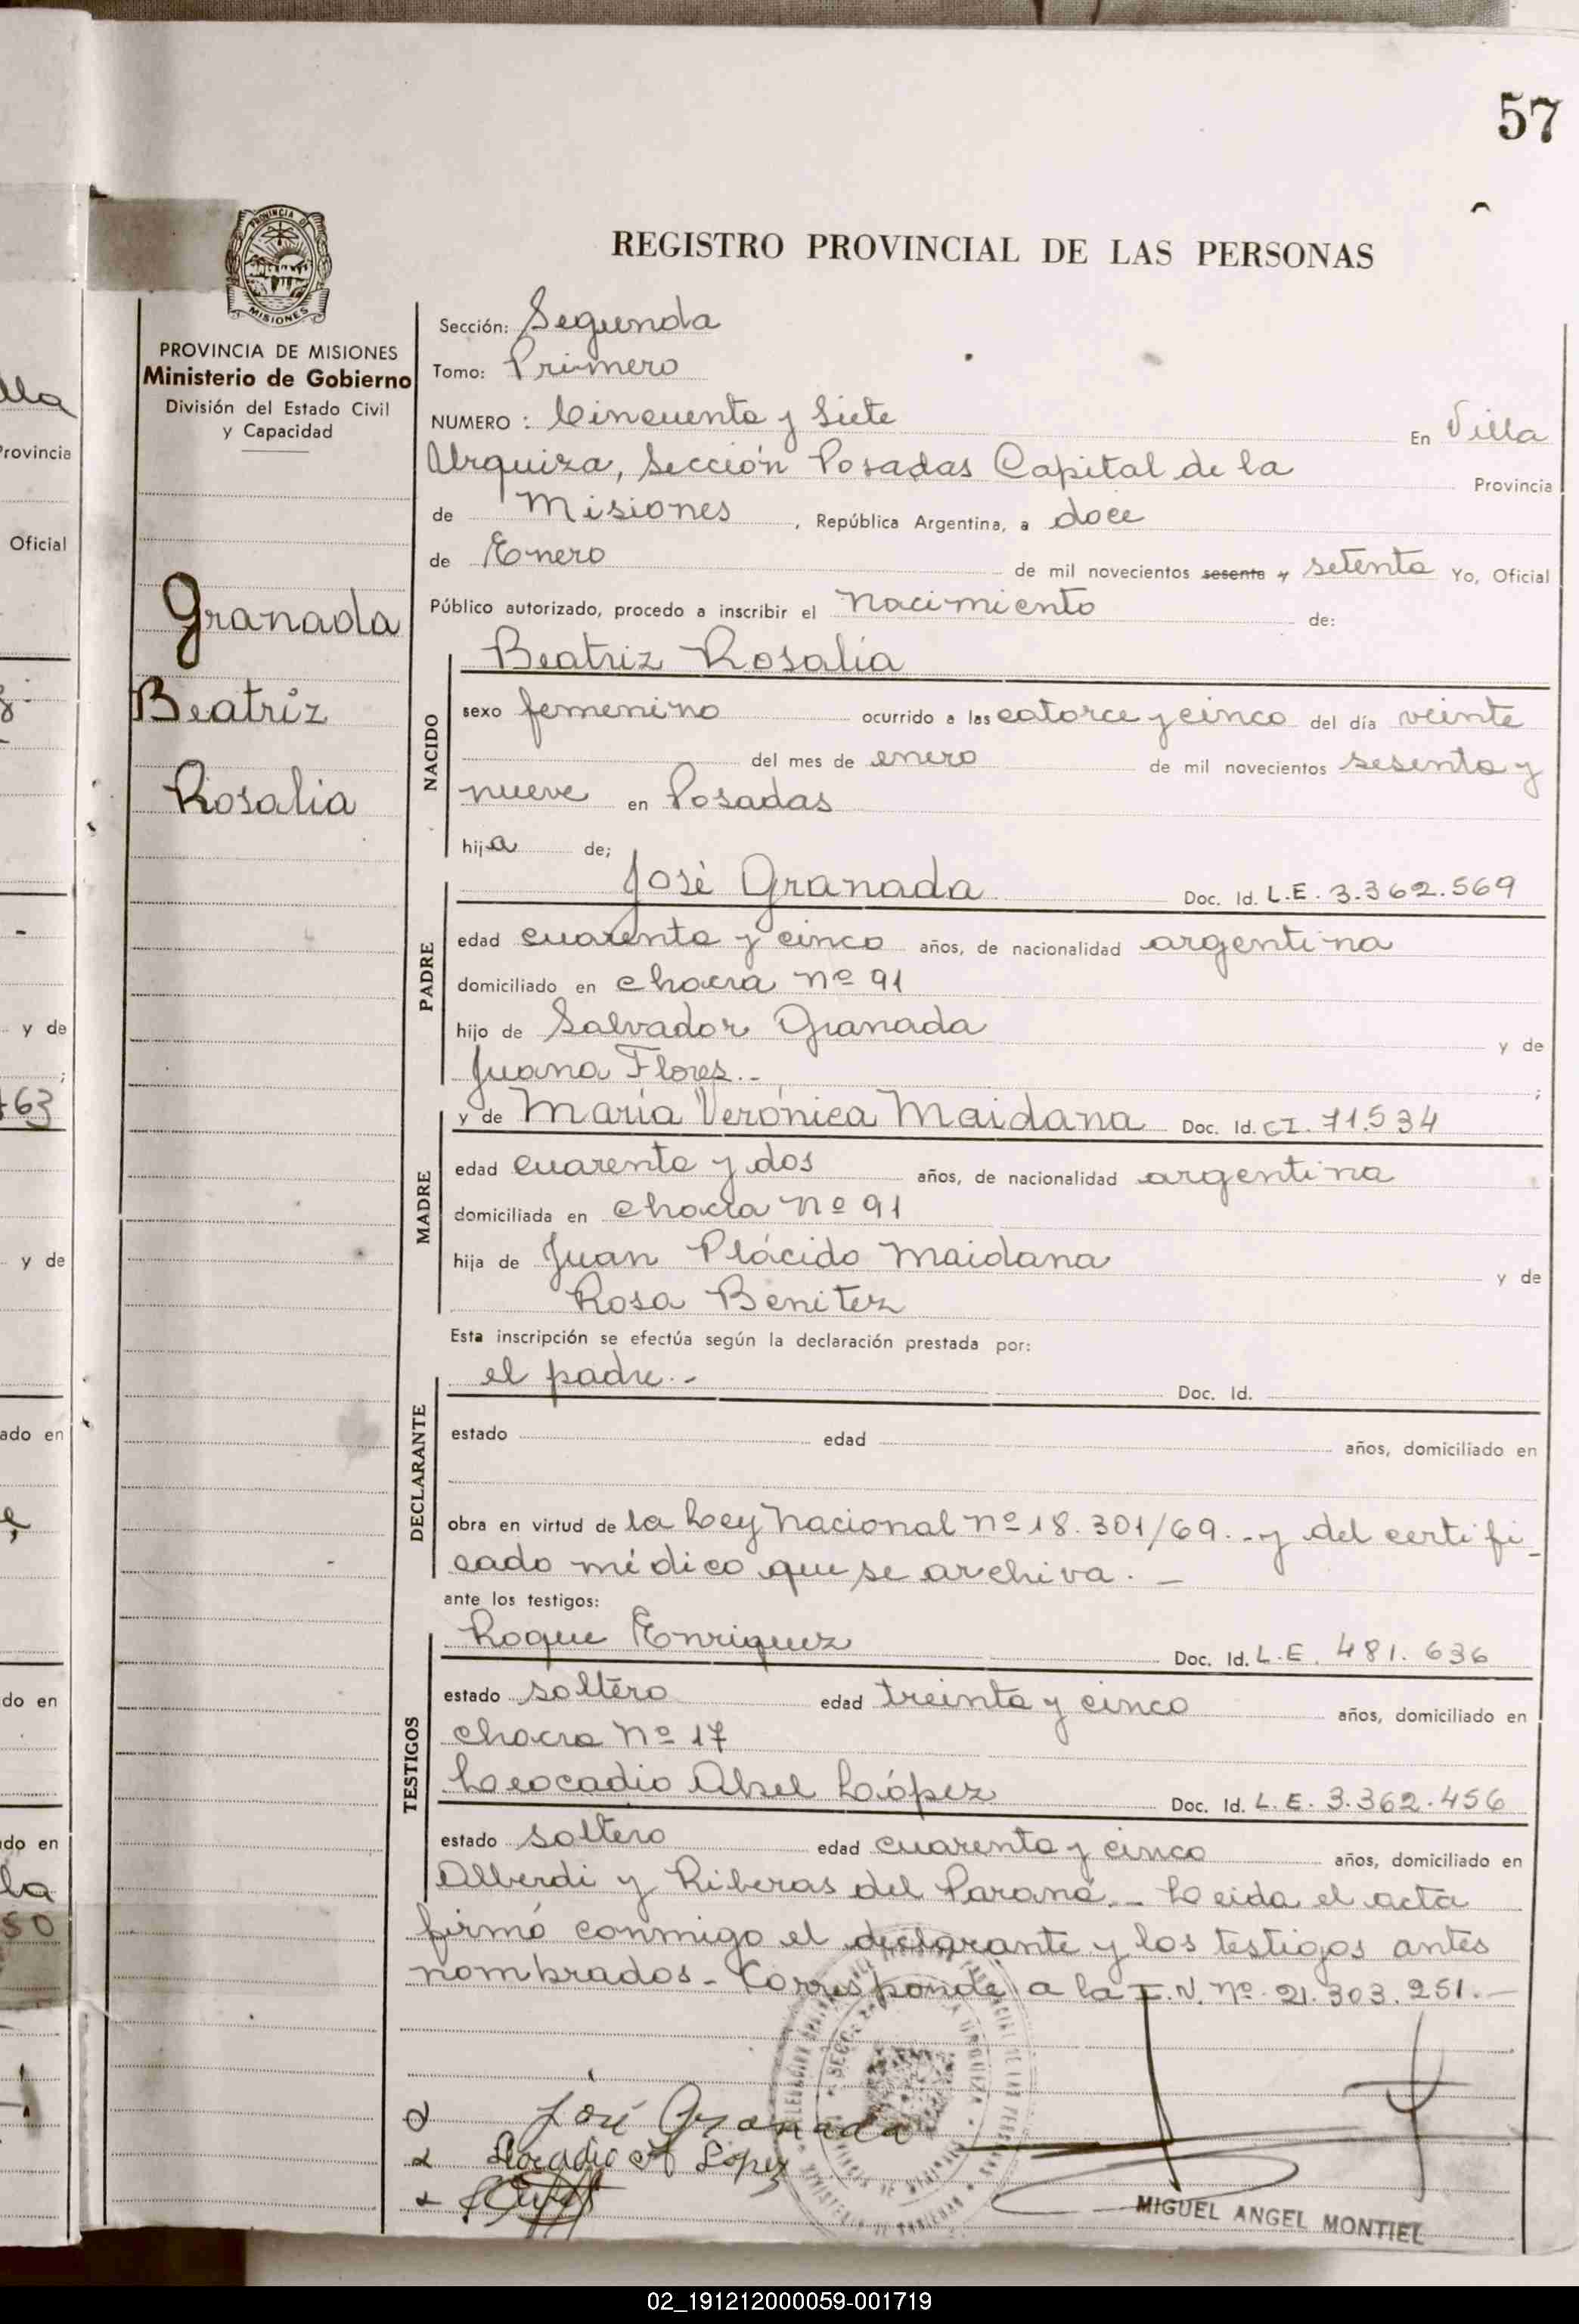 57
REGISTRO PROVINCIAL DE LAS PERSONAS
PROVINCIA DE MISIONES
Ministerio de Gobierno
División del Estado Civil
y Capacidad
Granada
Beatriz
Rosalia
Sección: Segunda
Tomo: Primero
NUMERO: Cincuenta y Siete En Villa
Urquiza, Sección Posadas Capital de la Provincia
de Misiones, República Argentina, a doce
de Enero de mil novecientos sesenta y setenta Yo, Oficial
Público autorizado, procedo a inscribir el nacimiento de:
Beatriz Rosalia
NACIDO
sexo femenino ocurrido a las catorce y cinco del día veinte
del mes de enero de mil novecientos sesenta y
nueve en Posadas
hija de;
José Granada Doc. Id. L.E. 3.362.569
PADRE
edad cuarenta y cinco años, de nacionalidad argentina
domiciliado en chacra nº 91
hijo de Salvador Granada y de
Juana Flores.- ;
y de María Verónica Maidana Doc. Id. CI. 71.534
MADRE
edad cuarenta y dos años, de nacionalidad argentina
domiciliada en chacra nº 91
hija de Juan Plácido Maidana y de
Rosa Benitez
Esta inscripción se efectúa según la declaración prestada por:
el padre.- Doc. Id.
DECLARANTE
estado edad años, domiciliado en
obra en virtud de la Ley Nacional nº 18.301/69.- y del certifi-
cado médico que se archiva.-
ante los testigos:
Roque Enriquez Doc. Id. L.E. 481.636
TESTIGOS
estado soltero edad treinta y cinco años, domiciliado en
chacra Nº 17
Leocadio Abel López Doc. Id. L.E. 3.362.456
estado soltero edad cuarenta y cinco años, domiciliado en
Alberdi y Riberas del Paraná.- Leida el acta
firmó conmigo el declarante y los testigos antes
nombrados- Corresponde a la I.N. nº. 21.303.251.-
José Granada
Leocadio A López
MIGUEL ANGEL MONTIEL
02_191212000059-001719